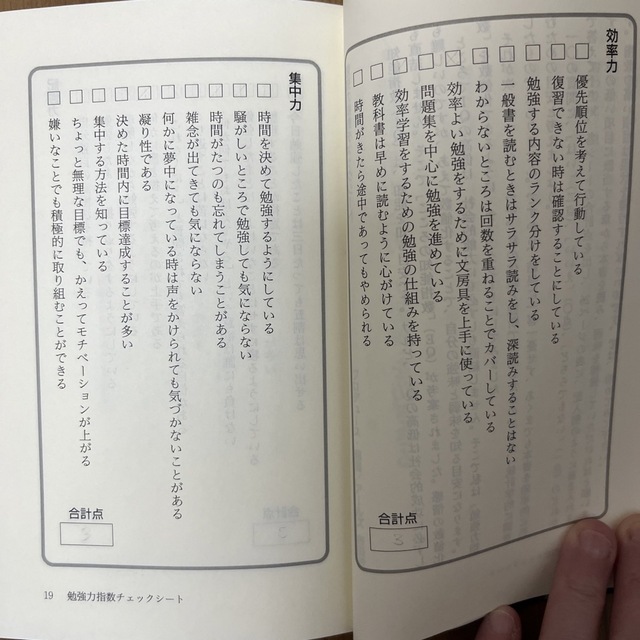 効率力
□ 優先順位を考えて行動している
□ 復習できない時は確認することにしている
□ 勉強する内容のランク分けをしている
□ 一般書を読むときはサラサラ読みをし、深読みすることはない
□ わからないところは回数を重ねることでカバーしている
□ 効率よい勉強をするために文房具を上手に使っている
□ 問題集を中心に勉強を進めている
□ 効率学習をするための勉強の仕組みを持っている
□ 教科書は早めに読むように心がけている
□ 時間がきたら途中であってもやめられる
合計点
集中力
□ 時間を決めて勉強するようにしている
□ 騒がしいところで勉強しても気にならない
□ 時間がたつのも忘れてしまうことがある
□ 雑念が出てきても気にならない
□ 何かに夢中になっている時は声をかけられても気づかないことがある
□ 凝り性である
□ 決めた時間内に目標達成することが多い
□ 集中する方法を知っている
□ ちょっと無理な目標でも、かえってモチベーションが上がる
□ 嫌いなことでも積極的に取り組むことができる
合計点
19 勉強力指数チェックシート